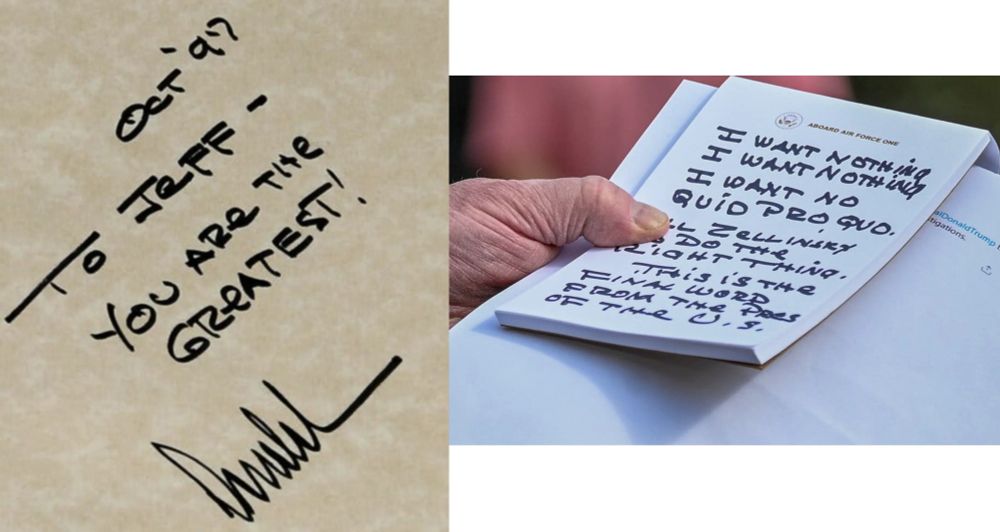 Oct '97
To Jeff -
You are the
greatest!
ABOARD AIR FORCE ONE
I WANT NOTHING
I WANT NOTHING
I WANT NO
QUID PRO QUO.
ZELLINSKY
DO THE
RIGHT THING.
THIS IS THE
FINAL WORD
FROM THE PRES
OF THE U.S.
alDonaldTrump
tigations,